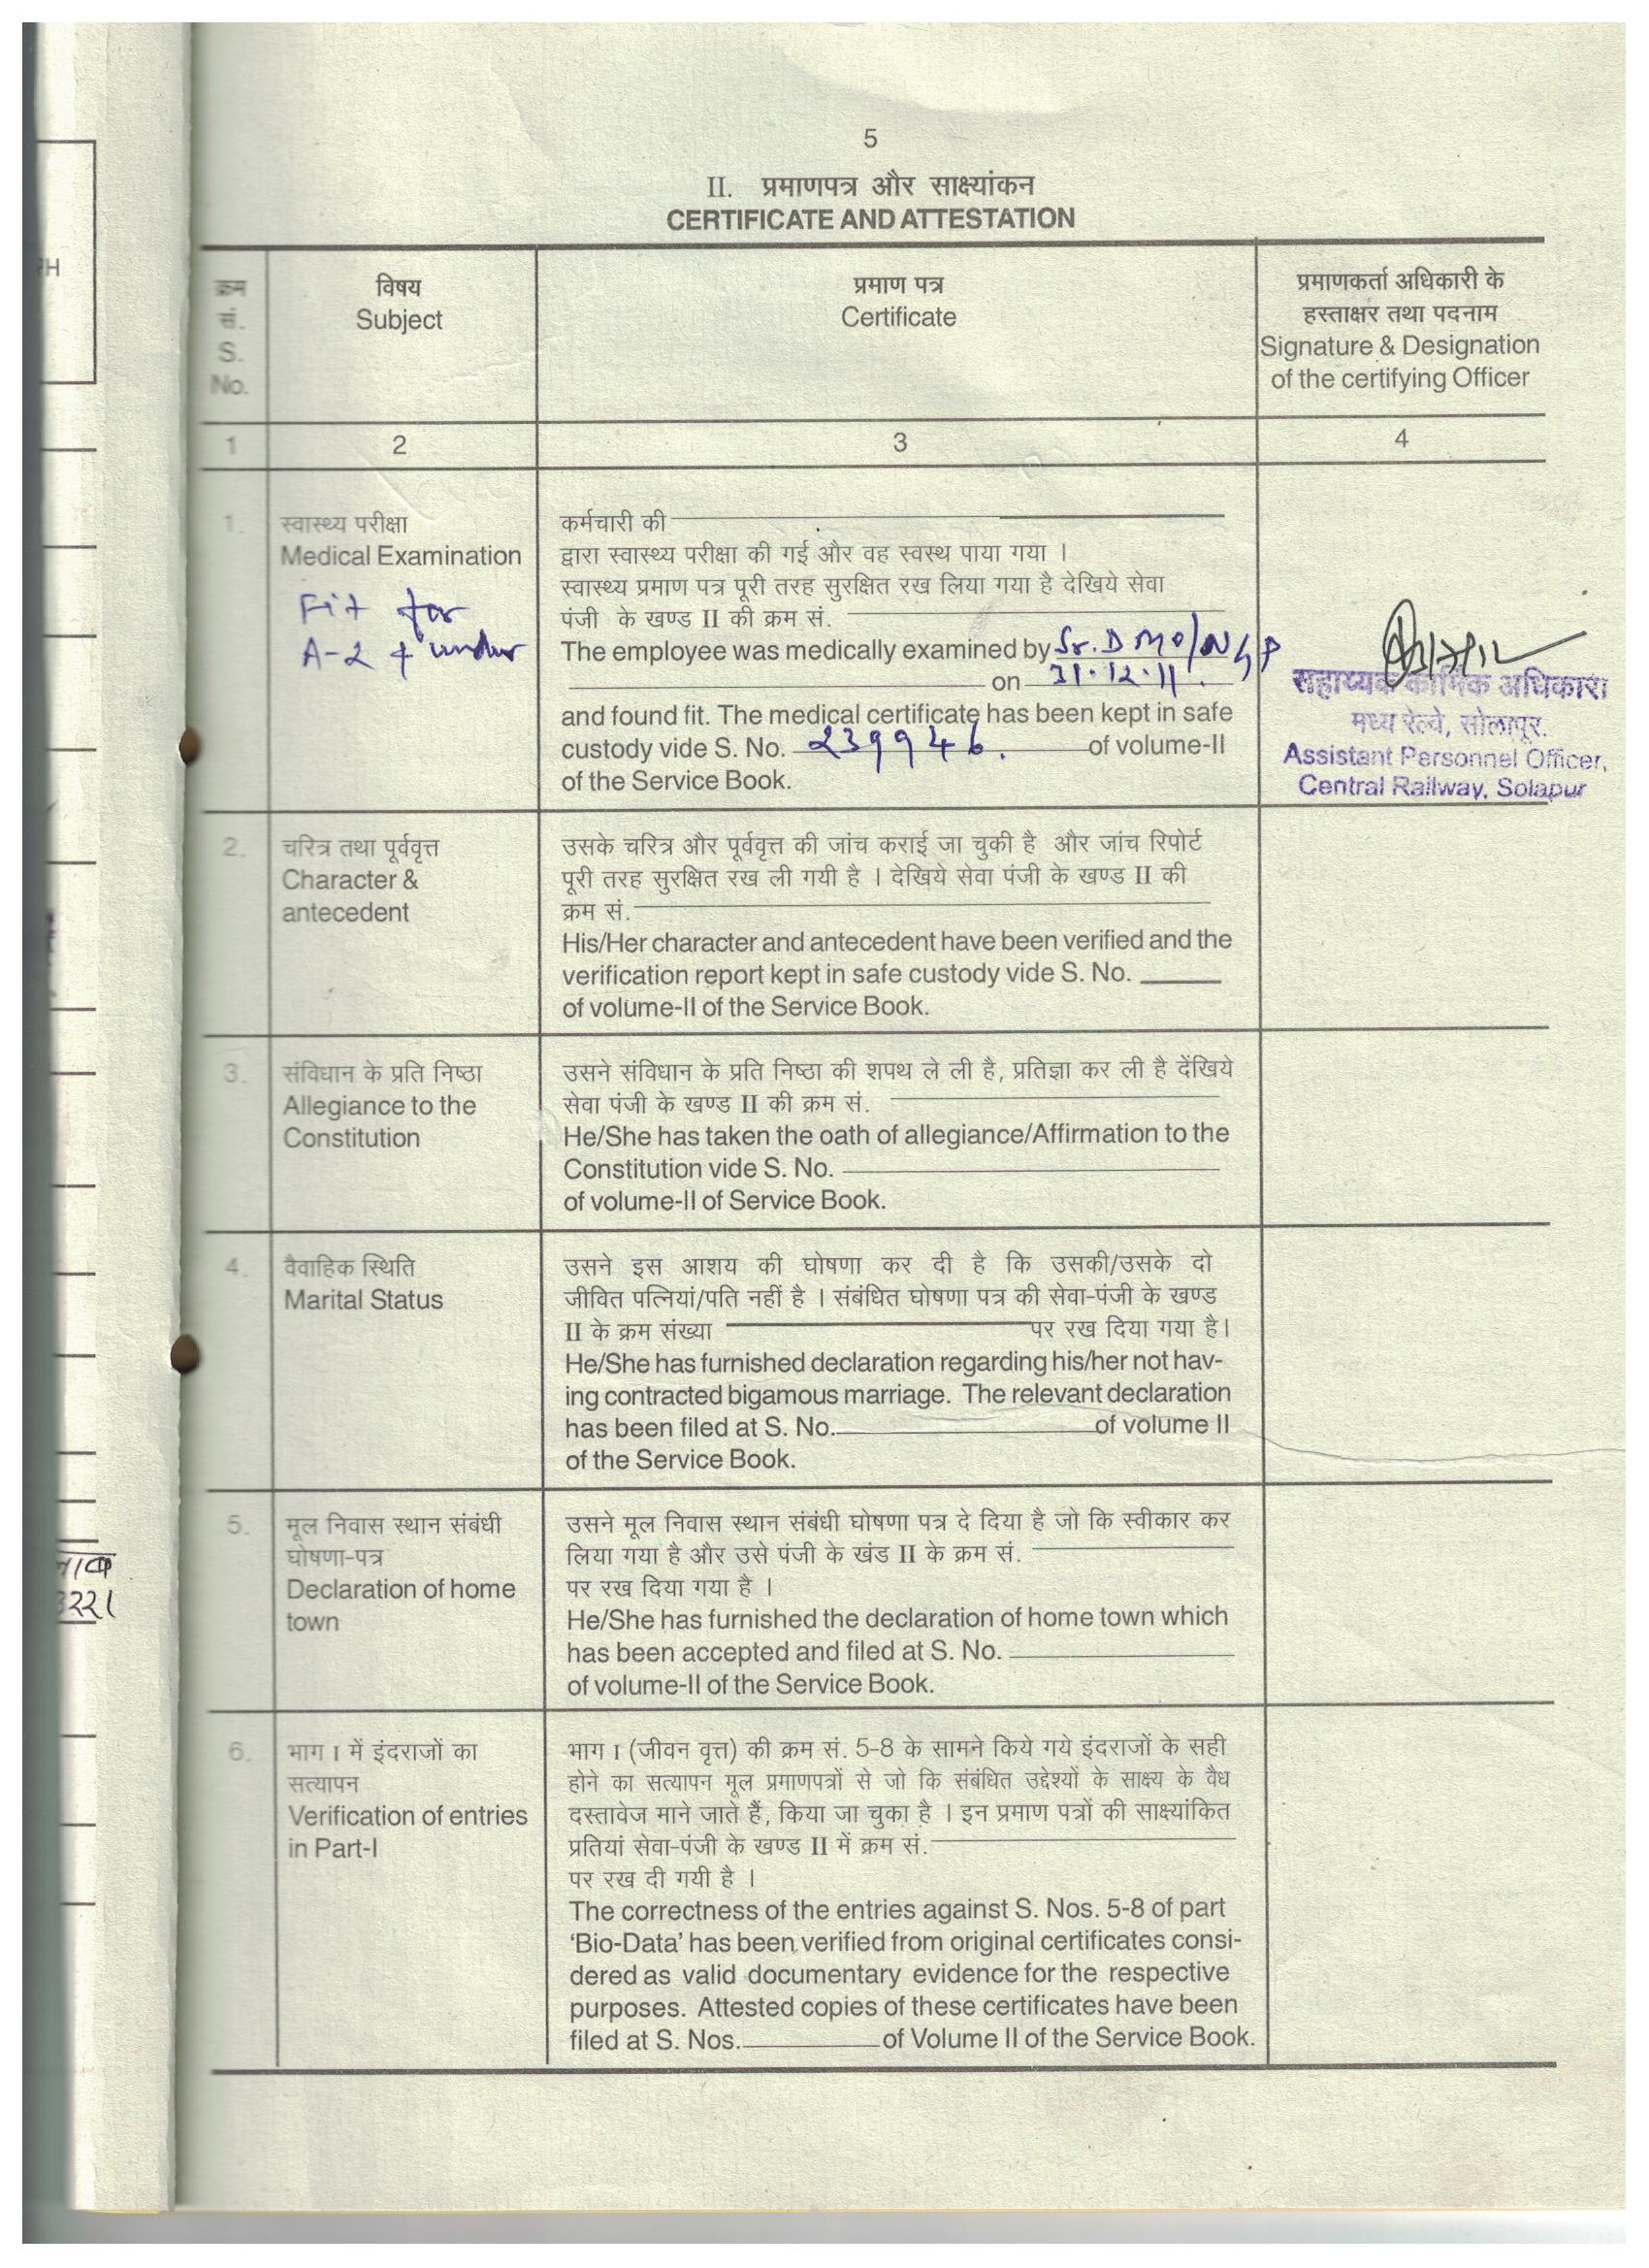 5
II. प्रमाणपत्र और साक्ष्यांकन
CERTIFICATE AND ATTESTATION
क्रम
सं.
S.
No.
विषय
Subject
प्रमाण पत्र
Certificate
प्रमाणकर्ता अधिकारी के
हस्ताक्षर तथा पदनाम
Signature & Designation
of the certifying Officer
1 2 3 4
1. स्वास्थ्य परीक्षा
Medical Examination
Fit for
A-2 & under
कर्मचारी की
द्वारा स्वास्थ्य परीक्षा की गई और वह स्वस्थ पाया गया ।
स्वास्थ्य प्रमाण पत्र पूरी तरह सुरक्षित रख लिया गया है देखिये सेवा
पंजी के खण्ड II की क्रम सं.
The employee was medically examined by Sr. D MO/
on 31.12.11.
and found fit. The medical certificate has been kept in safe
custody vide S. No. 239946. of volume-II
of the Service Book.
सहाय्यक कार्मिक अधिकारी
मध्य रेल्वे, सोलापूर.
Assistant Personnel Officer,
Central Railway, Solapur
2. चरित्र तथा पूर्ववृत्त
Character &
antecedent
उसके चरित्र और पूर्ववृत्त की जांच कराई जा चुकी है और जांच रिपोर्ट
पूरी तरह सुरक्षित रख ली गयी है । देखिये सेवा पंजी के खण्ड II की
क्रम सं.
His/Her character and antecedent have been verified and the
verification report kept in safe custody vide S. No.
of volume-II of the Service Book.
3. संविधान के प्रति निष्ठा
Allegiance to the
Constitution
उसने संविधान के प्रति निष्ठा की शपथ ले ली है, प्रतिज्ञा कर ली है देंखिये
सेवा पंजी के खण्ड II की क्रम सं.
He/She has taken the oath of allegiance/Affirmation to the
Constitution vide S. No.
of volume-II of Service Book.
4. वैवाहिक स्थिति
Marital Status
उसने इस आशय की घोषणा कर दी है कि उसकी/उसके दो
जीवित पत्नियां/पति नहीं है । संबंधित घोषणा पत्र की सेवा-पंजी के खण्ड
II के क्रम संख्या पर रख दिया गया है।
He/She has furnished declaration regarding his/her not hav-
ing contracted bigamous marriage. The relevant declaration
has been filed at S. No. of volume II
of the Service Book.
5. मूल निवास स्थान संबंधी
घोषणा-पत्र
Declaration of home
town
उसने मूल निवास स्थान संबंधी घोषणा पत्र दे दिया है जो कि स्वीकार कर
लिया गया है और उसे पंजी के खंड II के क्रम सं.
पर रख दिया गया है ।
He/She has furnished the declaration of home town which
has been accepted and filed at S. No.
of volume-II of the Service Book.
6. भाग I में इंदराजों का
सत्यापन
Verification of entries
in Part-I
भाग I (जीवन वृत्त) की क्रम सं. 5-8 के सामने किये गये इंदराजों के सही
होने का सत्यापन मूल प्रमाणपत्रों से जो कि संबंधित उद्देश्यों के साक्ष्य के वैध
दस्तावेज माने जाते हैं, किया जा चुका है । इन प्रमाण पत्रों की साक्ष्यांकित
प्रतियां सेवा-पंजी के खण्ड II में क्रम सं.
पर रख दी गयी है ।
The correctness of the entries against S. Nos. 5-8 of part
‘Bio-Data’ has been verified from original certificates consi-
dered as valid documentary evidence for the respective
purposes. Attested copies of these certificates have been
filed at S. Nos. of Volume II of the Service Book.